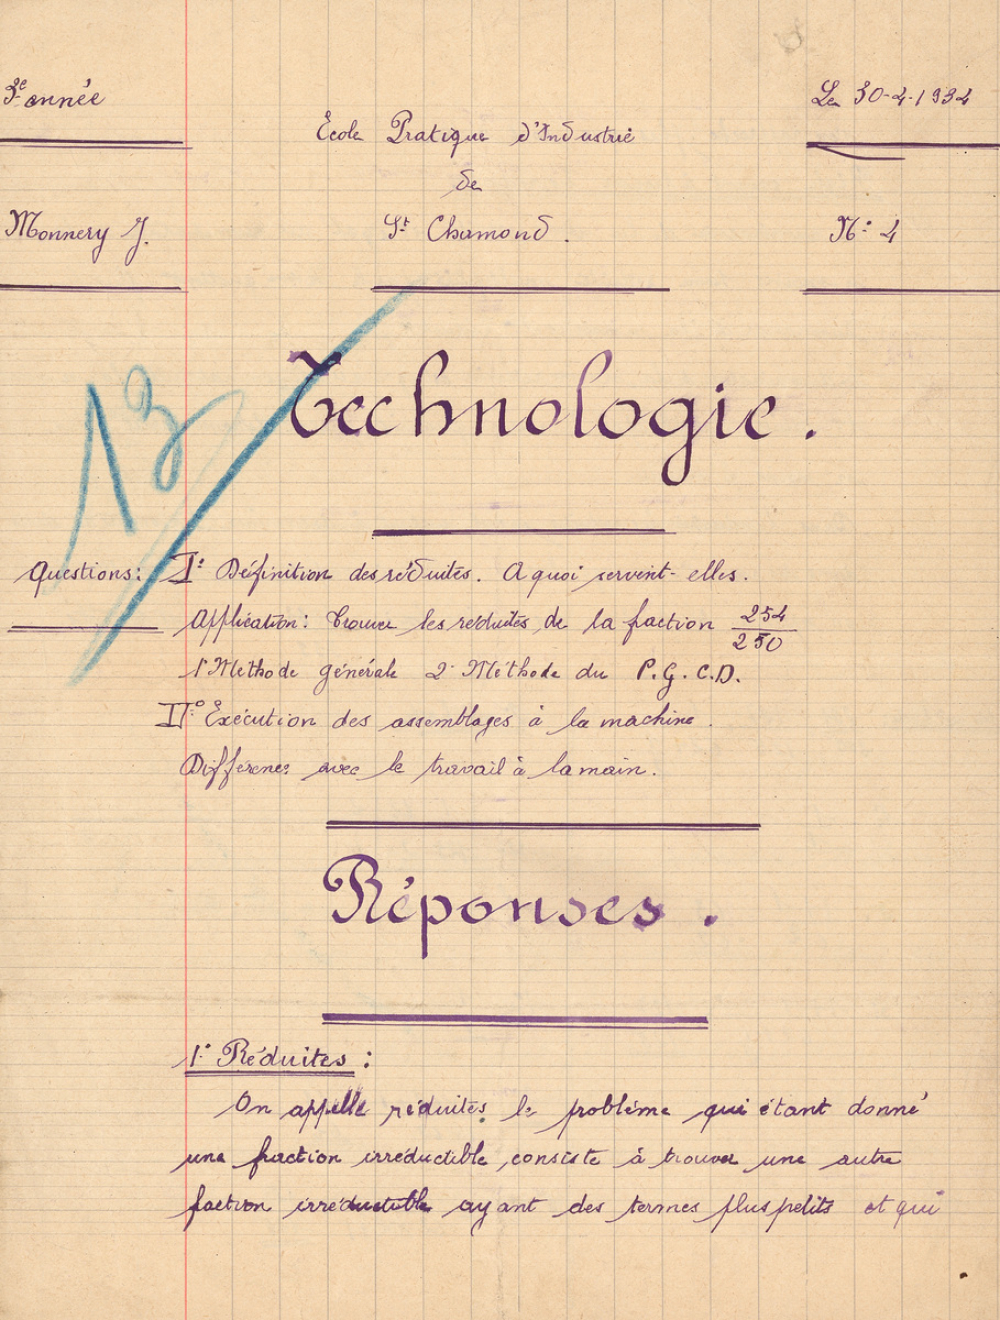 3e année
Le 30-4-1934
École Pratique d'Industrie
de
St Chamond.
Monnery J.
N° 4
13
Technologie.
Questions: I° Définition des réduites. A quoi servent-elles.
Application: Trouver les réduites de la fraction 254/250
1° Méthode générale 2° Méthode du P.G.C.D.
II° Exécution des assemblages à la machine.
Différences avec le travail à la main.
Réponses.
1° Réduites:
On appelle réduites le problème qui étant donné
une fraction irréductible, consiste à trouver une autre
faction irréductible ayant des termes plus petits et qui